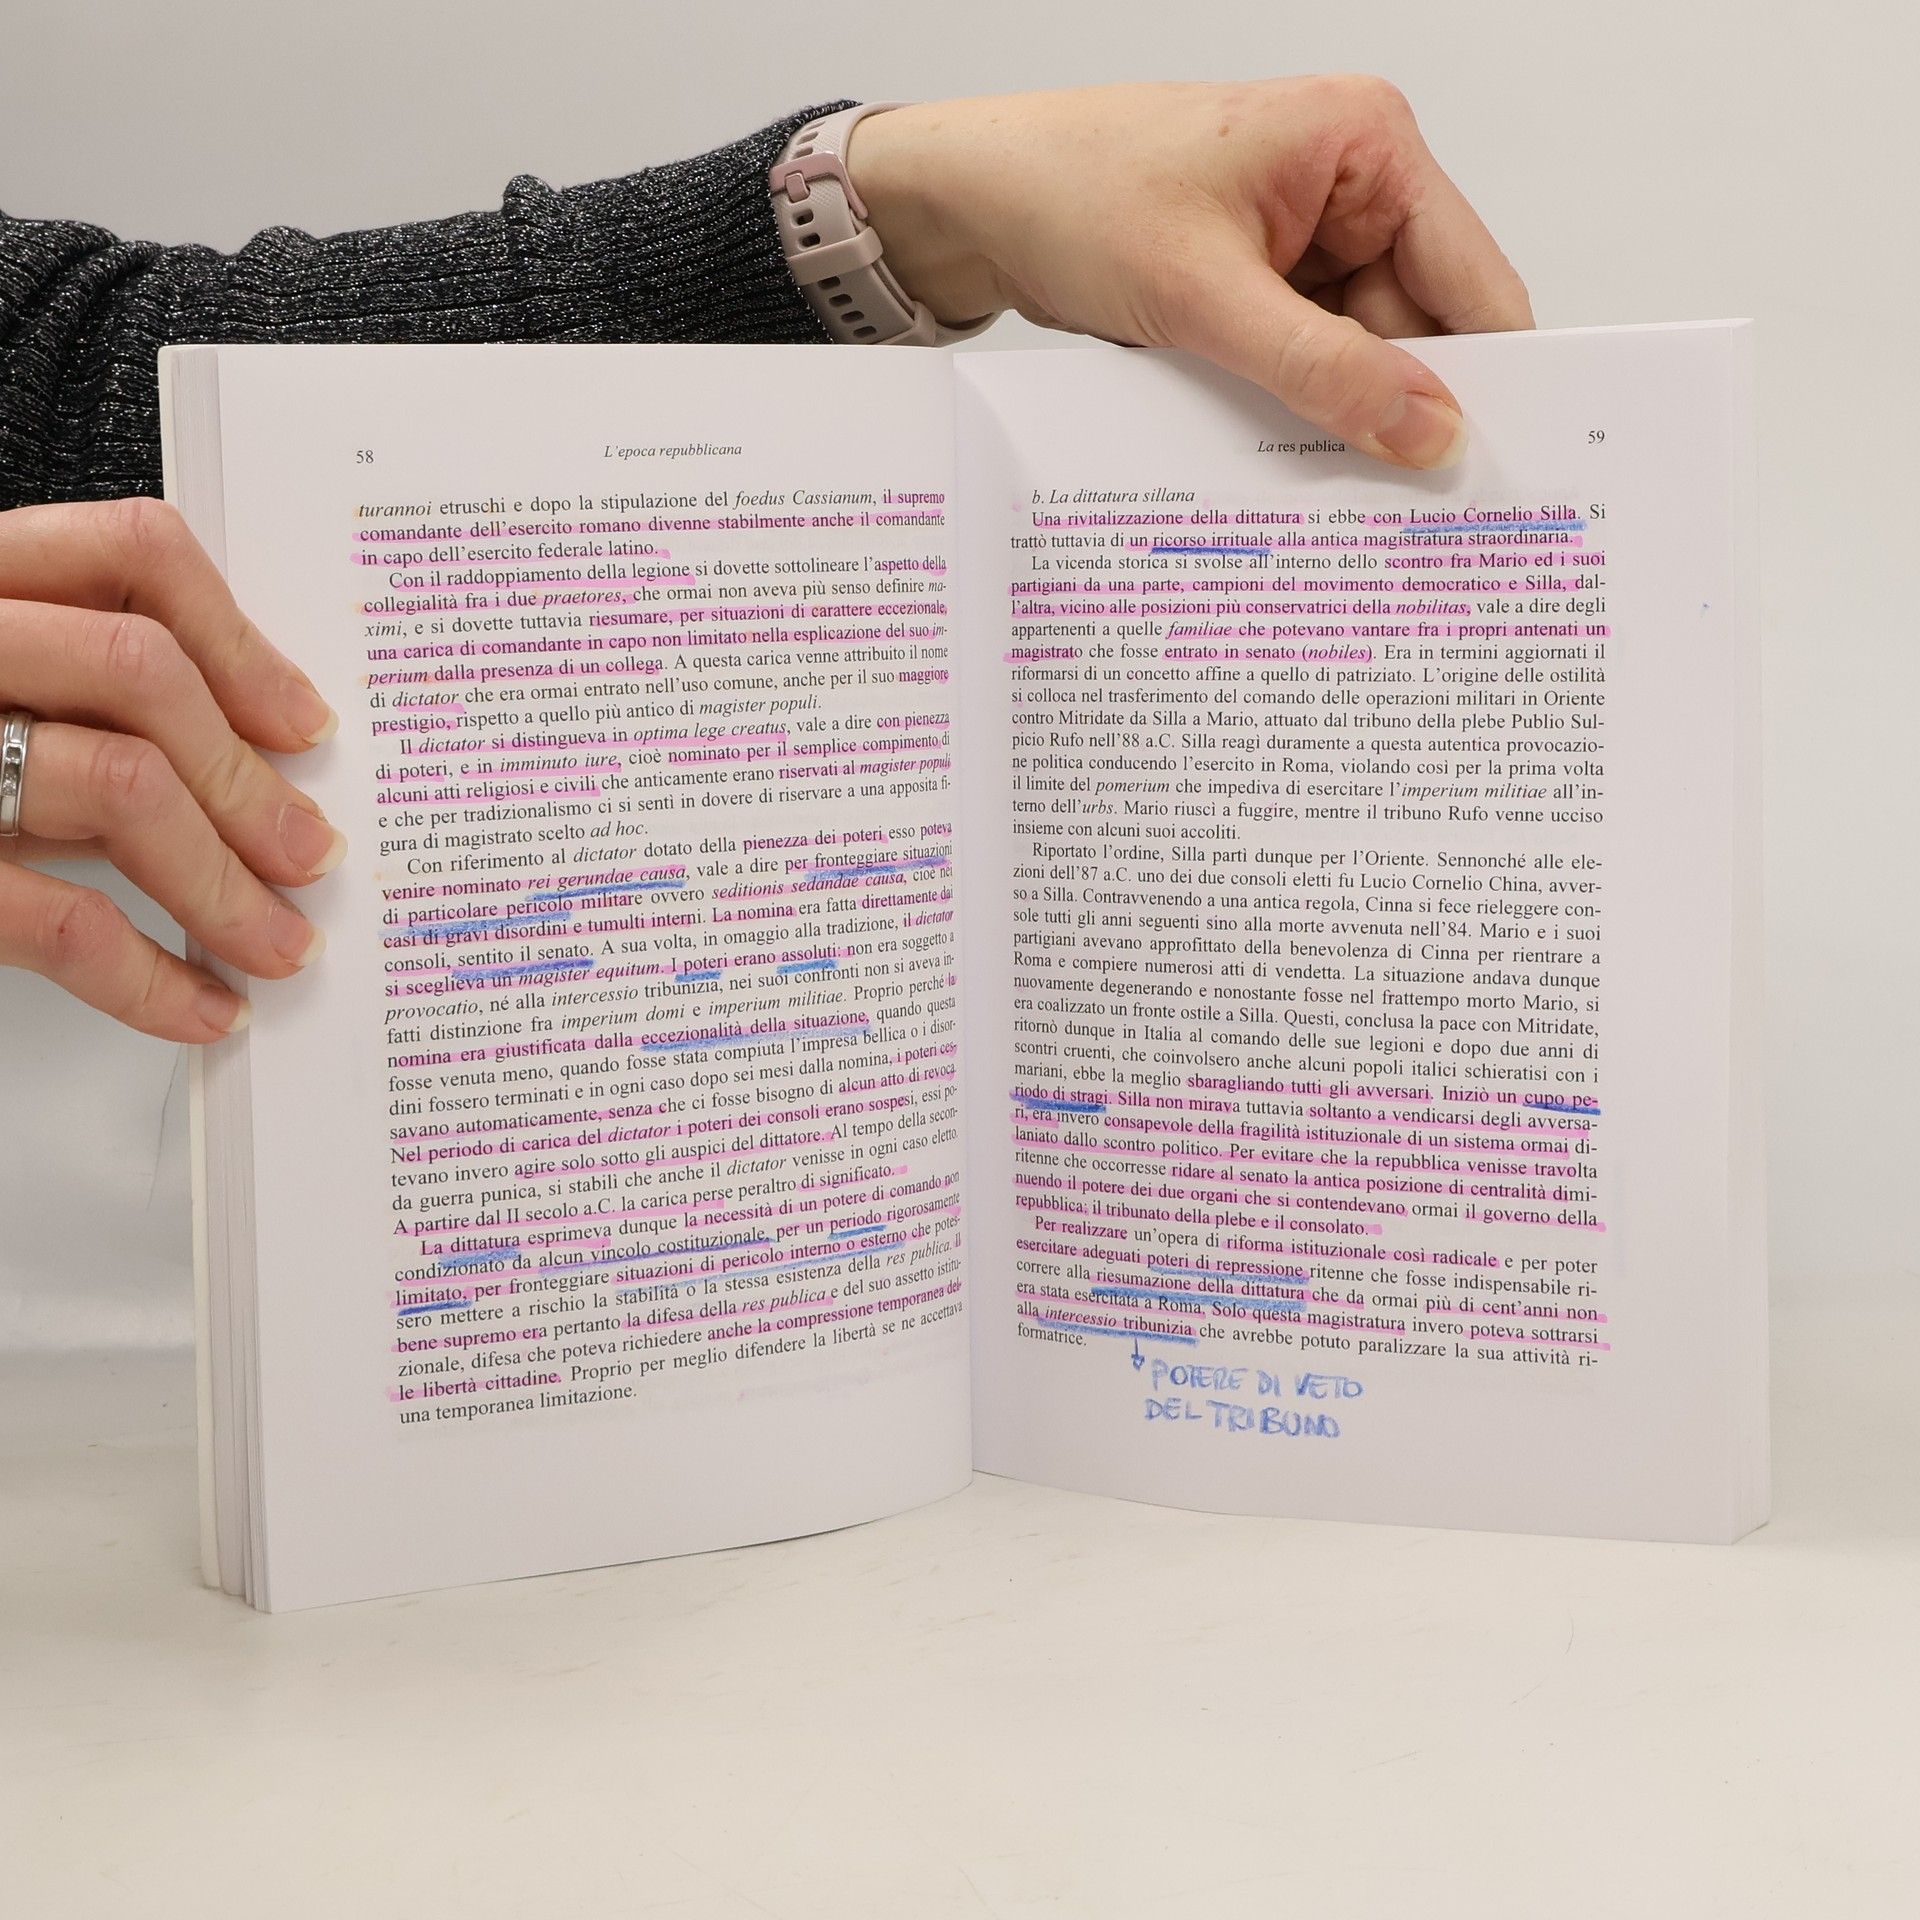 58
L'epoca repubblicana
turannoi etruschi e dopo la stipulazione del foedus Cassianum, il supremo
comandante dell'esercito romano divenne stabilmente anche il comandante
in capo dell'esercito federale latino.
Con il raddoppiamento della legione si dovette sottolineare l'aspetto della
collegialità fra i due praetores, che ormai non aveva più senso definire ma-
ximi, e si dovette tuttavia riesumare, per situazioni di carattere eccezionale,
una carica di comandante in capo non limitato nella esplicazione del suo im-
perium dalla presenza di un collega. A questa carica venne attribuito il nome
di dictator che era ormai entrato nell'uso comune, anche per il suo maggiore
prestigio, rispetto a quello più antico di magister populi.
Il dictator si distingueva in optima lege creatus, vale a dire con pienezza
di poteri, e in imminuto iure, cioè nominato per il semplice compimento di
alcuni atti religiosi e civili che anticamente erano riservati al magister populi
e che per tradizionalismo ci si sentì in dovere di riservare a una apposita fi-
gura di magistrato scelto ad hoc.
Con riferimento al dictator dotato della pienezza dei poteri esso poteva
venire nominato rei gerundae causa, vale a dire per fronteggiare situazioni
di particolare pericolo militare ovvero seditionis sedandae causa, cioè nei
casi di gravi disordini e tumulti interni. La nomina era fatta direttamente dai
consoli, sentito il senato. A sua volta, in omaggio alla tradizione, il dictator
si sceglieva un magister equitum. I poteri erano assoluti: non era soggetto a
provocatio, né alla intercessio tribunizia, nei suoi confronti non si aveva in-
fatti distinzione fra imperium domi e imperium militiae. Proprio perché la
nomina era giustificata dalla eccezionalità della situazione, quando questa
fosse venuta meno, quando fosse stata compiuta l'impresa bellica o i disor-
dini fossero terminati e in ogni caso dopo sei mesi dalla nomina, i poteri ces-
savano automaticamente, senza che ci fosse bisogno di alcun atto di revoca.
Nel periodo di carica del dictator i poteri dei consoli erano sospesi, essi po-
tevano invero agire solo sotto gli auspici del dittatore. Al tempo della secon-
da guerra punica, si stabilì che anche il dictator venisse in ogni caso eletto.
A partire dal II secolo a.C. la carica perse peraltro di significato.
La dittatura esprimeva dunque la necessità di un potere di comando non
condizionato da alcun vincolo costituzionale, per un periodo rigorosamente
limitato, per fronteggiare situazioni di pericolo interno o esterno che potes-
sero mettere a rischio la stabilità o la stessa esistenza della res publica. Il
bene supremo era pertanto la difesa della res publica e del suo assetto istitu-
zionale, difesa che poteva richiedere anche la compressione temporanea del-
le libertà cittadine. Proprio per meglio difendere la libertà se ne accettava
una temporanea limitazione.
La res publica
59
b. La dittatura sillana
Una rivitalizzazione della dittatura si ebbe con Lucio Cornelio Silla. Si
trattò tuttavia di un ricorso irrituale alla antica magistratura straordinaria.
La vicenda storica si svolse all'interno dello scontro fra Mario ed i suoi
partigiani da una parte, campioni del movimento democratico e Silla, dal-
l'altra, vicino alle posizioni più conservatrici della nobilitas, vale a dire degli
appartenenti a quelle familiae che potevano vantare fra i propri antenati un
magistrato che fosse entrato in senato (nobiles). Era in termini aggiornati il
riformarsi di un concetto affine a quello di patriziato. L'origine delle ostilità
si colloca nel trasferimento del comando delle operazioni militari in Oriente
contro Mitridate da Silla a Mario, attuato dal tribuno della plebe Publio Sul-
picio Rufo nell'88 a.C. Silla reagì duramente a questa autentica provocazio-
ne politica conducendo l'esercito in Roma, violando così per la prima volta
il limite del pomerium che impediva di esercitare l'imperium militiae all'in-
terno dell'urbs. Mario riuscì a fuggire, mentre il tribuno Rufo venne ucciso
insieme con alcuni suoi accoliti.
Riportato l'ordine, Silla partì dunque per l'Oriente. Sennonché alle ele-
zioni dell'87 a.C. uno dei due consoli eletti fu Lucio Cornelio China, avver-
so a Silla. Contravvenendo a una antica regola, Cinna si fece rieleggere con-
sole tutti gli anni seguenti sino alla morte avvenuta nell'84. Mario e i suoi
partigiani avevano approfittato della benevolenza di Cinna per rientrare a
Roma e compiere numerosi atti di vendetta. La situazione andava dunque
nuovamente degenerando e nonostante fosse nel frattempo morto Mario, si
era coalizzato un fronte ostile a Silla. Questi, conclusa la pace con Mitridate,
ritornò dunque in Italia al comando delle sue legioni e dopo due anni di
scontri cruenti, che coinvolsero anche alcuni popoli italici schieratisi con i
mariani, ebbe la meglio sbaragliando tutti gli avversari. Iniziò un cupo pe-
riodo di stragi. Silla non mirava tuttavia soltanto a vendicarsi degli avversa-
ri, era invero consapevole della fragilità istituzionale di un sistema ormai di-
laniato dallo scontro politico. Per evitare che la repubblica venisse travolta
ritenne che occorresse ridare al senato la antica posizione di centralità dimi-
nuendo il potere dei due organi che si contendevano ormai il governo della
repubblica: il tribunato della plebe e il consolato.
Per realizzare un'opera di riforma istituzionale così radicale e per poter
esercitare adeguati poteri di repressione ritenne che fosse indispensabile ri-
correre alla riesumazione della dittatura che da ormai più di cent'anni non
era stata esercitata a Roma. Solo questa magistratura invero poteva sottrarsi
alla intercessio tribunizia che avrebbe potuto paralizzare la sua attività ri-
formatrice.
POTERE DI VETO
DEL TRIBUNO